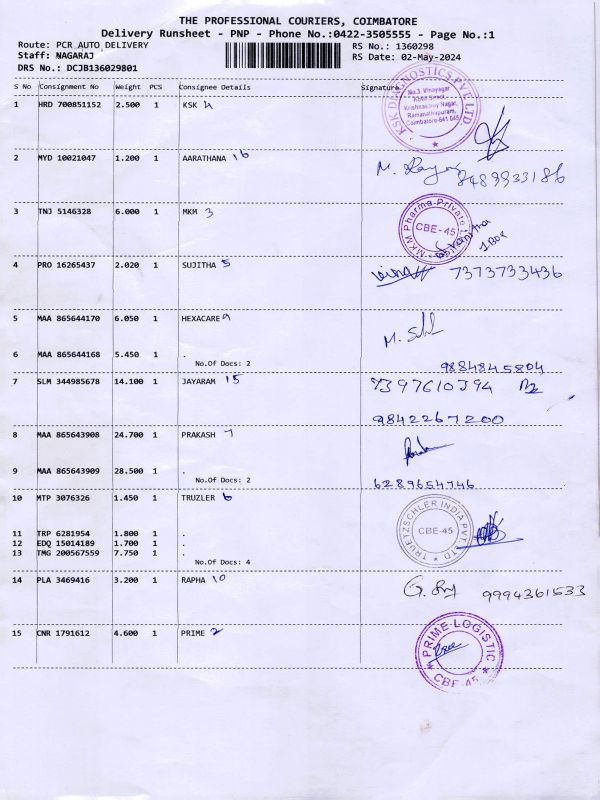 THE PROFESSIONAL COURIERS, COIMBATORE
Delivery Runsheet - PNP - Phone No.:0422-3505555 - Page No.:1
Route: PCR AUTO DELIVERY
RS No.: 1360298
Staff: NAGARAJ
RS Date: 02-May-2024
DRS No.: DCJB136029801
S No Consignment No Weight PCS Consignee Details Signature
1 HRD 700851152 2.500 1 KSK 4
KSK DIAGNOSTICS PVT LTD
No.3 Vinayagar
Kovil Street,
Krishnaswamy Nagar,
Ramanathapuram,
Coimbatore-641 045
2 MYD 10021047 1.200 1 AARATHANA 16
M.
8489933186
3 TNJ 5146328 6.000 1 MKM 3
MKM Pharma Private
CBE-45
1 Box
4 PRO 16265437 2.020 1 SUJITHA 5
7373733436
5 MAA 865644170 6.050 1 HEXACARE 9
M.
6 MAA 865644168 5.450 1 .
No.Of Docs: 2
9884845804
7 SLM 344985678 14.100 1 JAYARAM 15
7397610394
9842267200
8 MAA 865643908 24.700 1 PRAKASH 7
9 MAA 865643909 28.500 1 .
No.Of Docs: 2
6289654746
10 MTP 3076326 1.450 1 TRUZLER 6
TRUETZSCHLER INDIA PVT LTD
CBE-45
11 TRP 6281954 1.800 1 .
12 EDQ 15014189 1.700 1 .
13 TMG 200567559 7.750 1 .
No.Of Docs: 4
14 PLA 3469416 3.200 1 RAPHA 10
G.
9994361533
15 CNR 1791612 4.600 1 PRIME 2
PRIME LOGISTIC
CBE-45